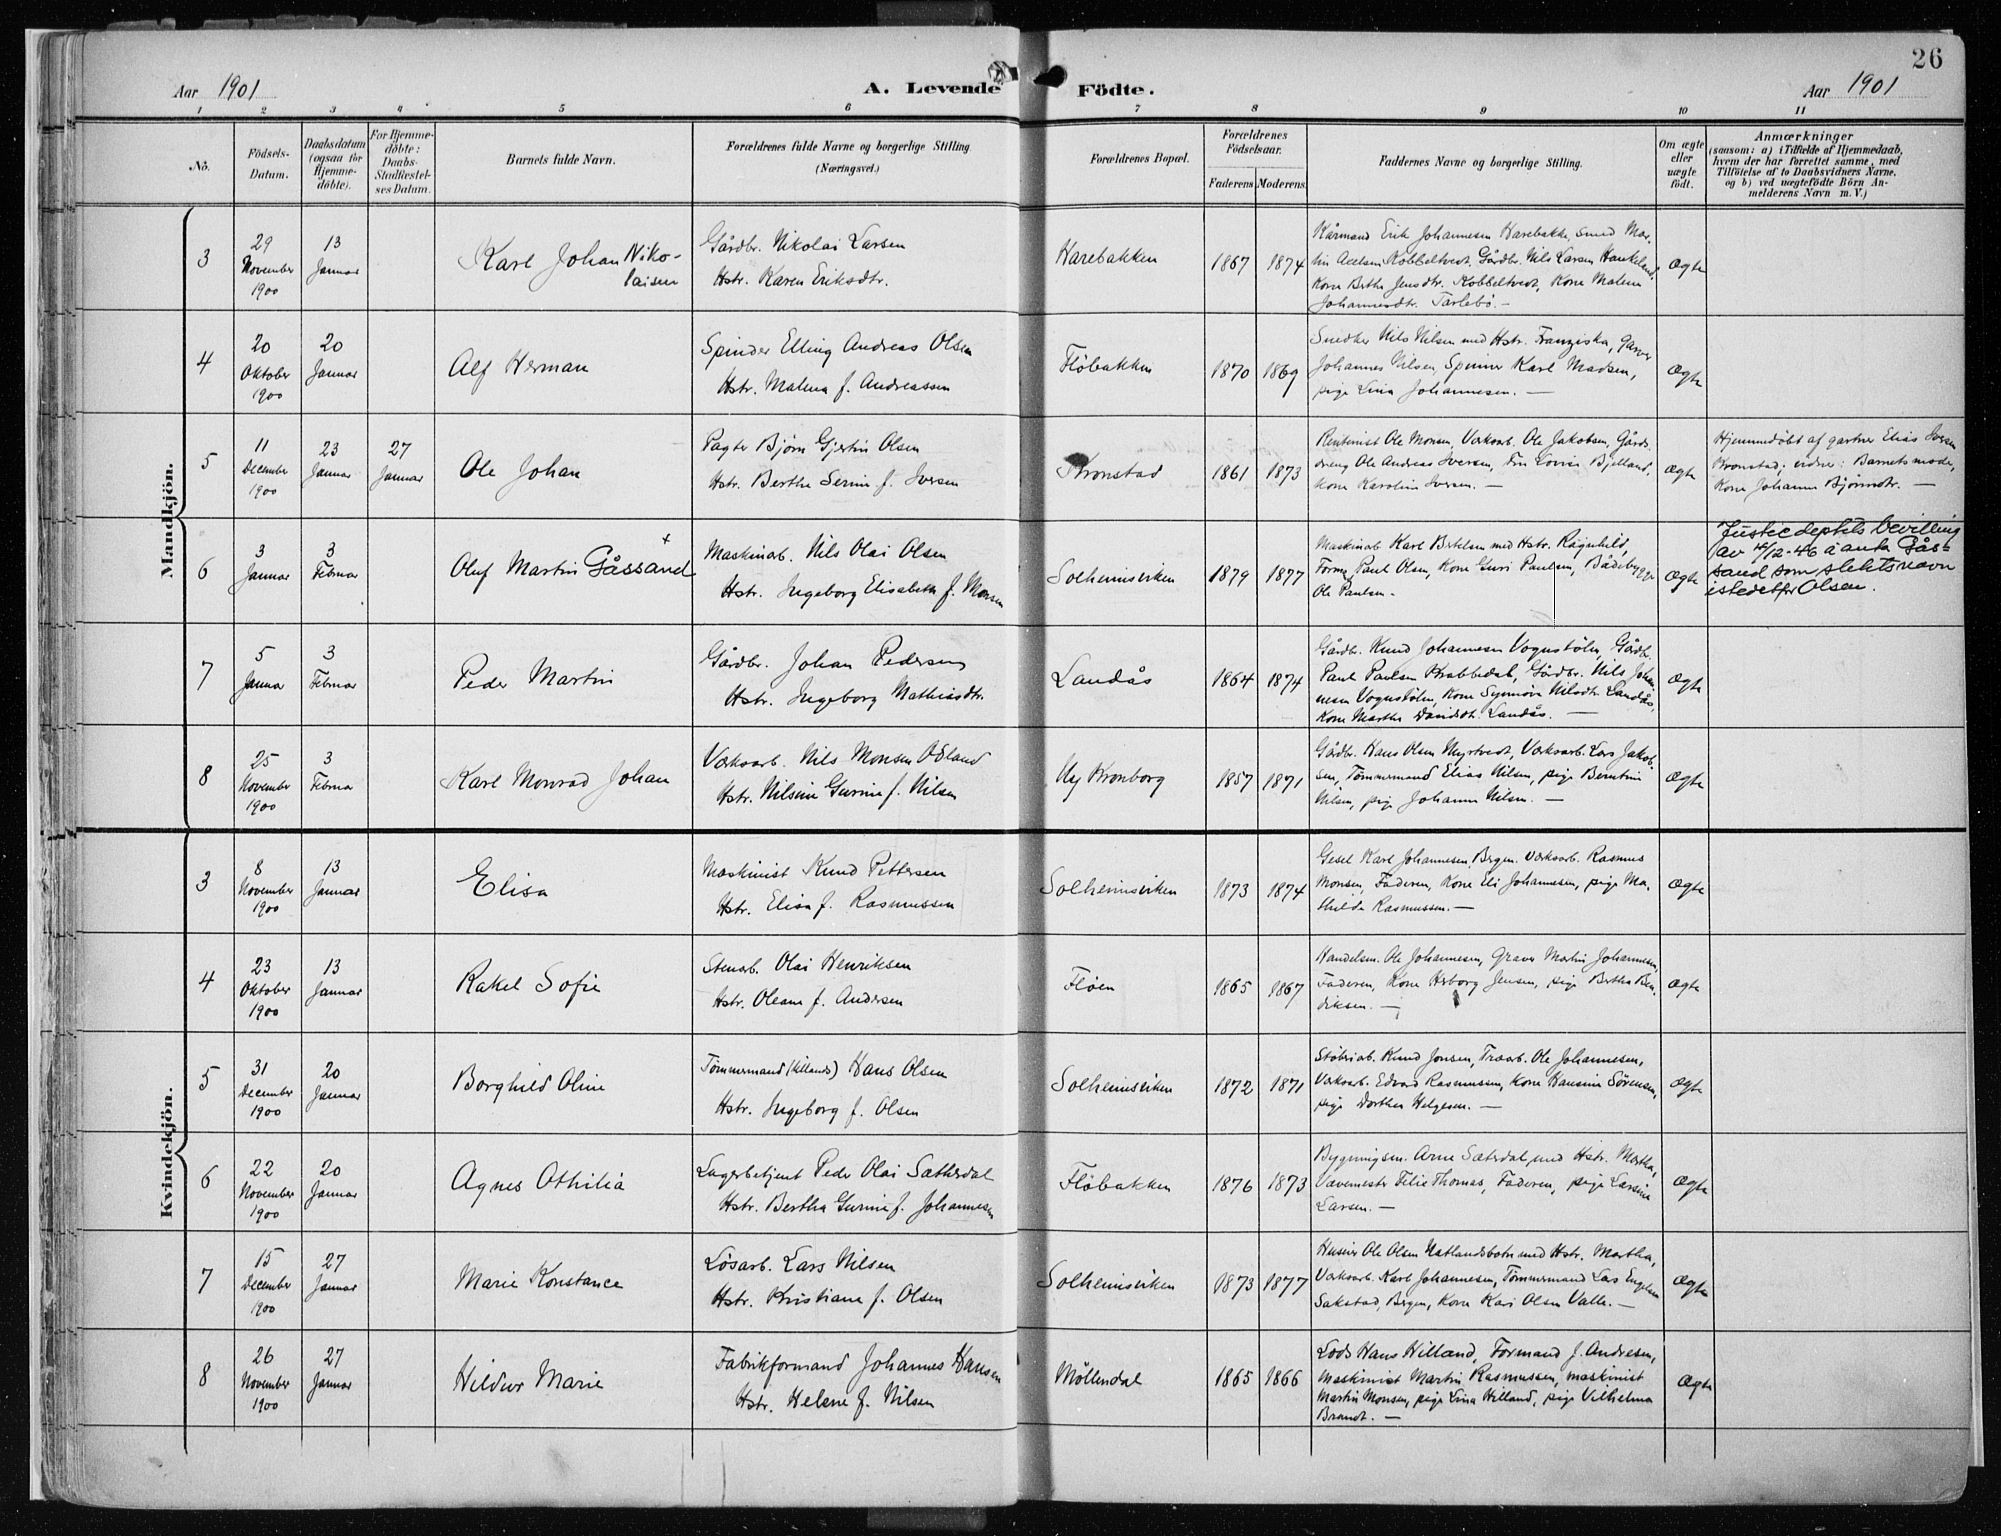 26
Aar 1901
A. Levende Födte.
Aar 1901
1 2 3 4 5 6 7 8 9 10 11
No.
Födsels-Datum.
Daabsdatum (ogsaa for Hjemme-döbte).
For Hjemme-döbte: Daabs-Stadfæstel-ses Datum.
Barnets fulde Navn.
Forældrenes fulde Navne og borgerlige Stilling (Næringsvei.)
Forældrenes Bopæl.
Forældrenes Födselsaar.
Faderens Moderens
Faddernes Navne og borgerlige Stilling.
Om ægte eller uægte födt.
Anmærkninger
(saasom: a) i Tilfælde af Hjemmedaab,
hvem der har forrettet samme, med
Tilföielse af to Daabsvidners Navne,
og b) ved uægtefödte Börn An-
melderens Navn m. V.)
Mandkjön.
3
29 November 1900
13 Januar
Karl Johan Niko-
laisen
Gårdbr. Nikolai Larsen
Hstr. Karen Eriksdtr.
Harebakken
1867 1874
Kårmand Erik Johannesen Harebakke, smed Mar-
tin Axelsen Kobbeltvedt, Gårdbr. Nils Larsen Haukeland,
Kone Berthe Jensdtr. Kobbeltvedt, Kone Malena
Johannesdtr. Tarlebø. —
Ægte
4
20 Oktober 1900
20 Januar
Alf Herman
Spinder Elling Andreas Olsen
Hstr. Malena f. Andreassen
Fløbakken
1870 1869
Snedker Nils Nilsen med Hstr. Franziska, Garver
Johannes Nilsen, Spinner Karl Madsen,
pige Lina Johannesen. —
Ægte
5
11 December 1900
23 Januar
27 Januar
Ole Johan
Pagter Bjørn Gjertin Olsen
Hstr. Berthe Serine f. Iversen
Kronstad
1861 1873
Rentenist Ole Monsen, Værksarb. Ole Jakobsen, Gårds-
dreng Ole Andreas Iversen, Frk Lovise Bjelland,
Kone Karoline Iversen. —
Ægte
Hjemmedøbt af gartner Elias Iversen
Kronstad; vidner: Barnets moder,
Kone Johanne Bjørnsdtr. —
6
3 Januar
3 Februar
Oluf Martin Gåssand +
Maskinarb. Nils Olai Olsen
Hstr. Ingeborg Elisabeth f. Monsen
Solheimsviken
1879 1877
Maskinarb Karl Bertelsen med Hstr. Ragnhild,
Former Paul Olsen, Kone Guri Paulsen, Bådebygger
Ole Paulsen. -
Ægte
Justiedeptets bevilling
av 4/12-46 å anta Gås-
sand som slektsnavn
istedetfor Olsen.
7
5 Januar
3 Februar
Peder Martin
Gårdbr. Johan Pedersen
Hstr. Ingeborg Mathiasdtr.
Landås
1864 1874
Gårdbr. Knud Johannesen Vognstølen, Gårdbr.
Paul Paulsen Krabbedal, Gårdbr. Nils Johan-
nesen Vognstølen, Kone Synnøve Nilsdtr. Landås,
Kone Marthe Davidsdtr. Landås. —
Ægte
8
25 November 1900
3 Februar
Karl Monrad Johan
Værksarb. Nils Monsen Ødland
Hstr. Nilsine Gurine f. Nilsen
Ny Kronborg
1857 1871
Gårdbr. Hans Olsen Myrtvedt, Værksarb. Lars Jakob-
sen, Tømmermand Elias Nilsen, pige Berntine
Nilsen, pige Johanne Nilsen. —
Ægte
Kvindekjön.
3
8 November 1900
13 Januar
Elisa
Maskinist Knud Pettersen
Hstr. Elisa f. Rasmussen
Solheimsviken
1873 1874
Gesel Karl Johannesen, Bergen. Værksarb. Rasmus
Monsen, Faderen, Kone Eli Johannesen, pige Ma-
thilde Rasmussen. —
Ægte
4
23 Oktober 1900
13 Januar
Rakel Sofie
Stenarb. Olai Henriksen
Hstr. Oleane f. Andersen
Fløen
1865 1867
Handelsm. Ole Johannesen, Graver Martin Johannesen,
Faderen, Kone Herborg Jensen, pige Bertha Ben-
diksen. —
Ægte
5
31 December 1900
20 Januar
Borghild Oline
Tømmermand (tillands) Hans Olsen
Hstr. Ingeborg f. Olsen
Solheimsviken
1872 1871
Støberiarb. Knud Jonsen, Træarb. Ole Johannesen,
Værksarb. Edvard Rasmussen, Kone Hansine Sørensen,
pige Dorthea Helgesen. —
Ægte
6
22 November 1900
20 Januar
Agnes Othilia
Lagerbetjent Peder Olai Sætherdal
Hstr. Bertha Gurine f. Johannesen
Fløbakken
1876 1873
Bygningsm. Arne Sæterdal med Hstr. Martha,
Vævemester Felix Thomas, Faderen, pige Larsine
Larsen. —
Ægte
7
15 December 1900
27 Januar
Marie Konstance
Løsarb. Lars Nilsen
Hstr. Kristiane f. Olsen
Solheimsviken
1873 1877
Husmd Ole Olsen Natlandsbotn med Hstr. Martha,
Værksarb. Karl Johannesen, Tømmermand Lars Engelsen
Sakstad, Bergen, Kone Kari Olsen Valle. —
Ægte
8
26 November 1900
27 Januar
Hildur Marie
Fabrikformand Johannes Hansen
Hstr. Helene f. Nilsen
Möllendal
1865 1866
Lods Hans Hilland, Formand J. Andresen,
Maskinist Martin Rasmussen, maskinist
Martin Monsen, pige Lina Hilland, pige Vilhelmina
Brandt. —
Ægte